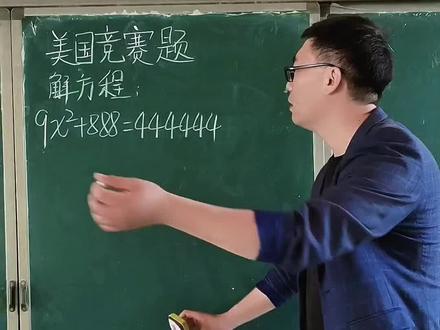 美国竞赛题
解方程:
9x²+888=444444